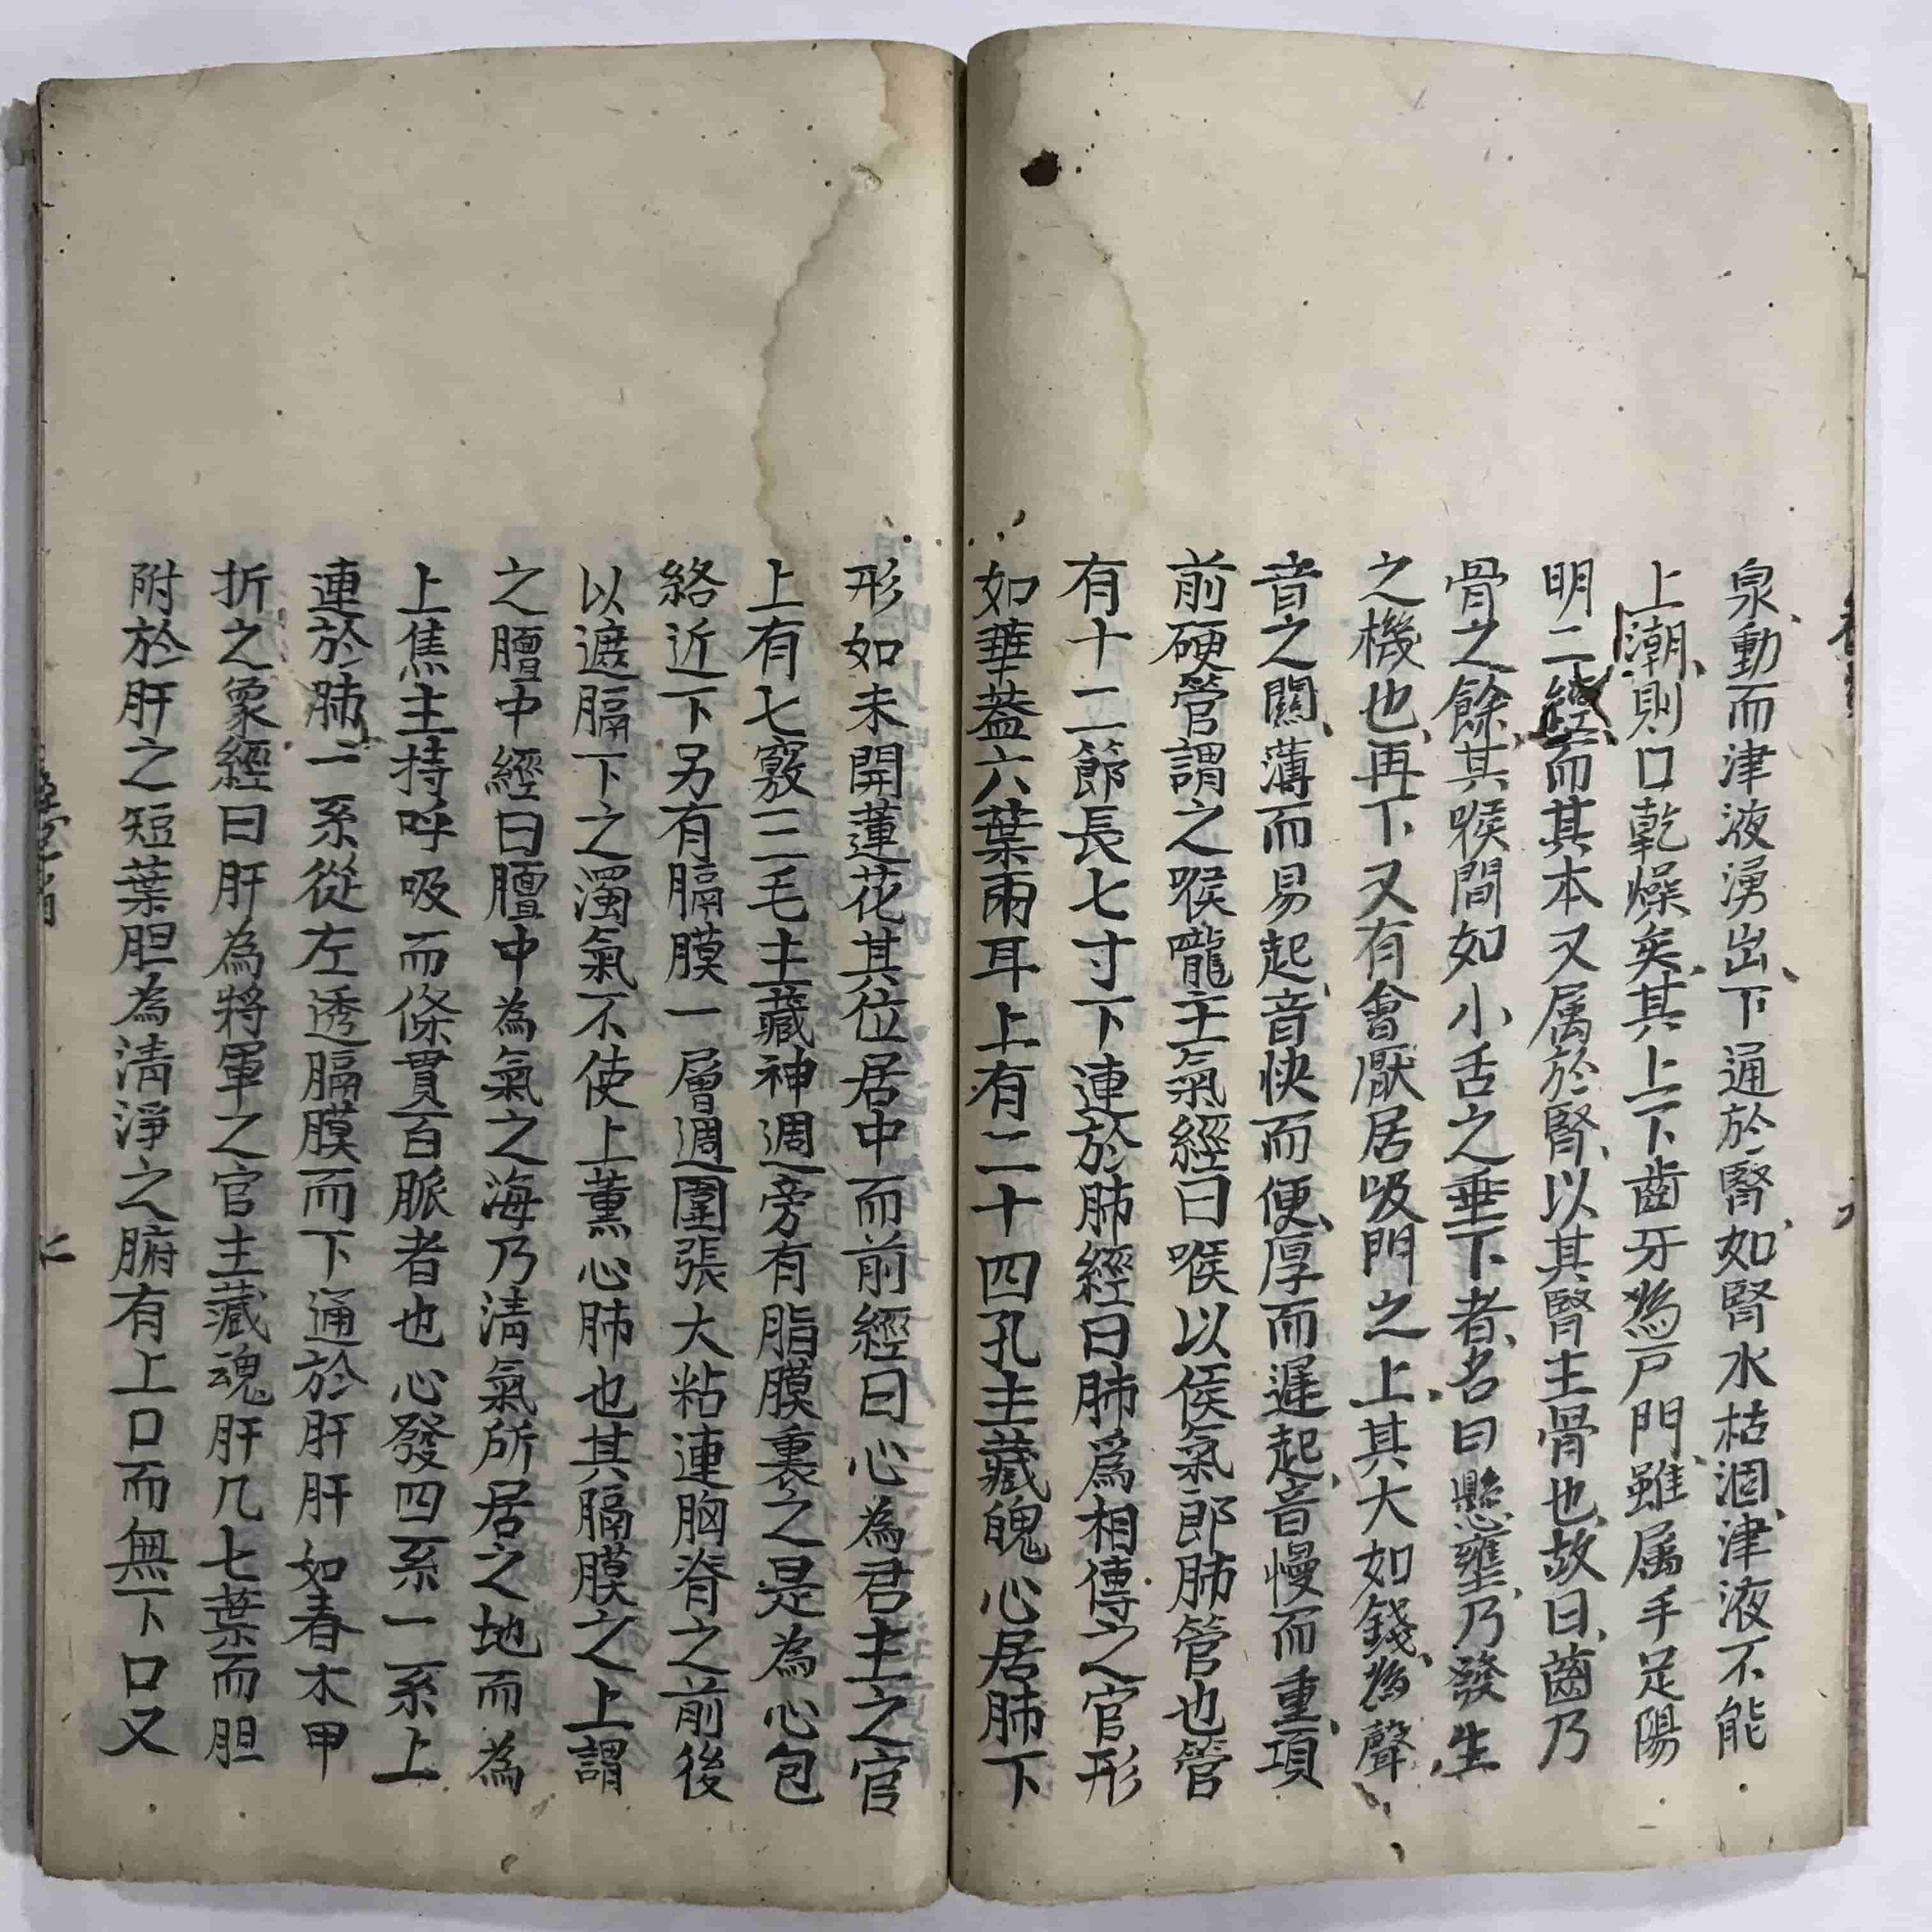 泉動而津液湧出下通於腎如腎水枯涸津液不能
上潮則口乾燥矣其上下齒牙為戶門雖属手足陽
明二經而其本又属於腎以其腎主骨也故曰齒乃
骨之餘其喉間如小舌之垂下者名曰懸壅乃發生
之機也再下又有會厭居吸門之上其大如錢為聲
音之關薄而易起音快而便厚而遲起音慢而重項
前硬管謂之喉嚨主氣經曰喉以候氣郎肺管也管
有十二節長七寸下連於肺經曰肺爲相傳之官形
如華蓋六葉兩耳上有二十四孔主藏魄心居肺下
形如未開蓮花其位居中而前經曰心為君主之官
上有七竅三毛主藏神週旁有脂膜裹之是為心包
絡近下另有膈膜一層週圍張大粘連胸脊之前後
以遮膈下之濁氣不使上薰心肺也其膈膜之上謂
之膻中經曰膻中為氣之海乃清氣所居之地而為
上焦主持呼吸而條貫百脈者也心發四系一系上
連於肺一系從左透膈膜而下通於肝肝如春木甲
折之象經曰肝為將軍之官主藏魂肝几七葉而胆
附於肝之短葉胆為清淨之腑有上口而無下口又